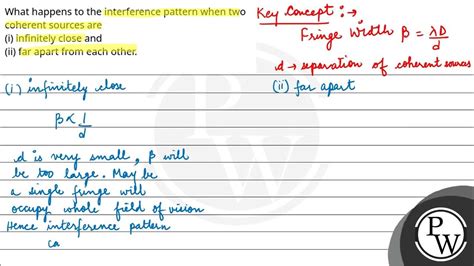 What happens to the interference pattern when two
coherent sources are
(i) infinitely close and
(ii) far apart from each other.
Key Concept :→
Fringe width β = λD/d
d → separation of coherent sources
(i) infinitely close
β ∝ 1/d
d is very small, β will
be too large. May be
a single fringe will
occupy whole field of vision
Hence interference pattern
ca
(ii) far apart
P
W
P
W